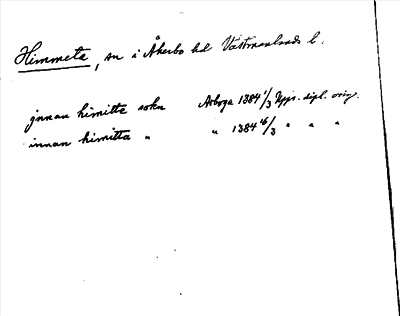 Himmeta, sn i Åkerbo hd Västmanlands l.
jnnan himitta sokn Arboga 1384 1/3 Upps. dipl. orig.
innan himitta " " 1384 16/3 " " "